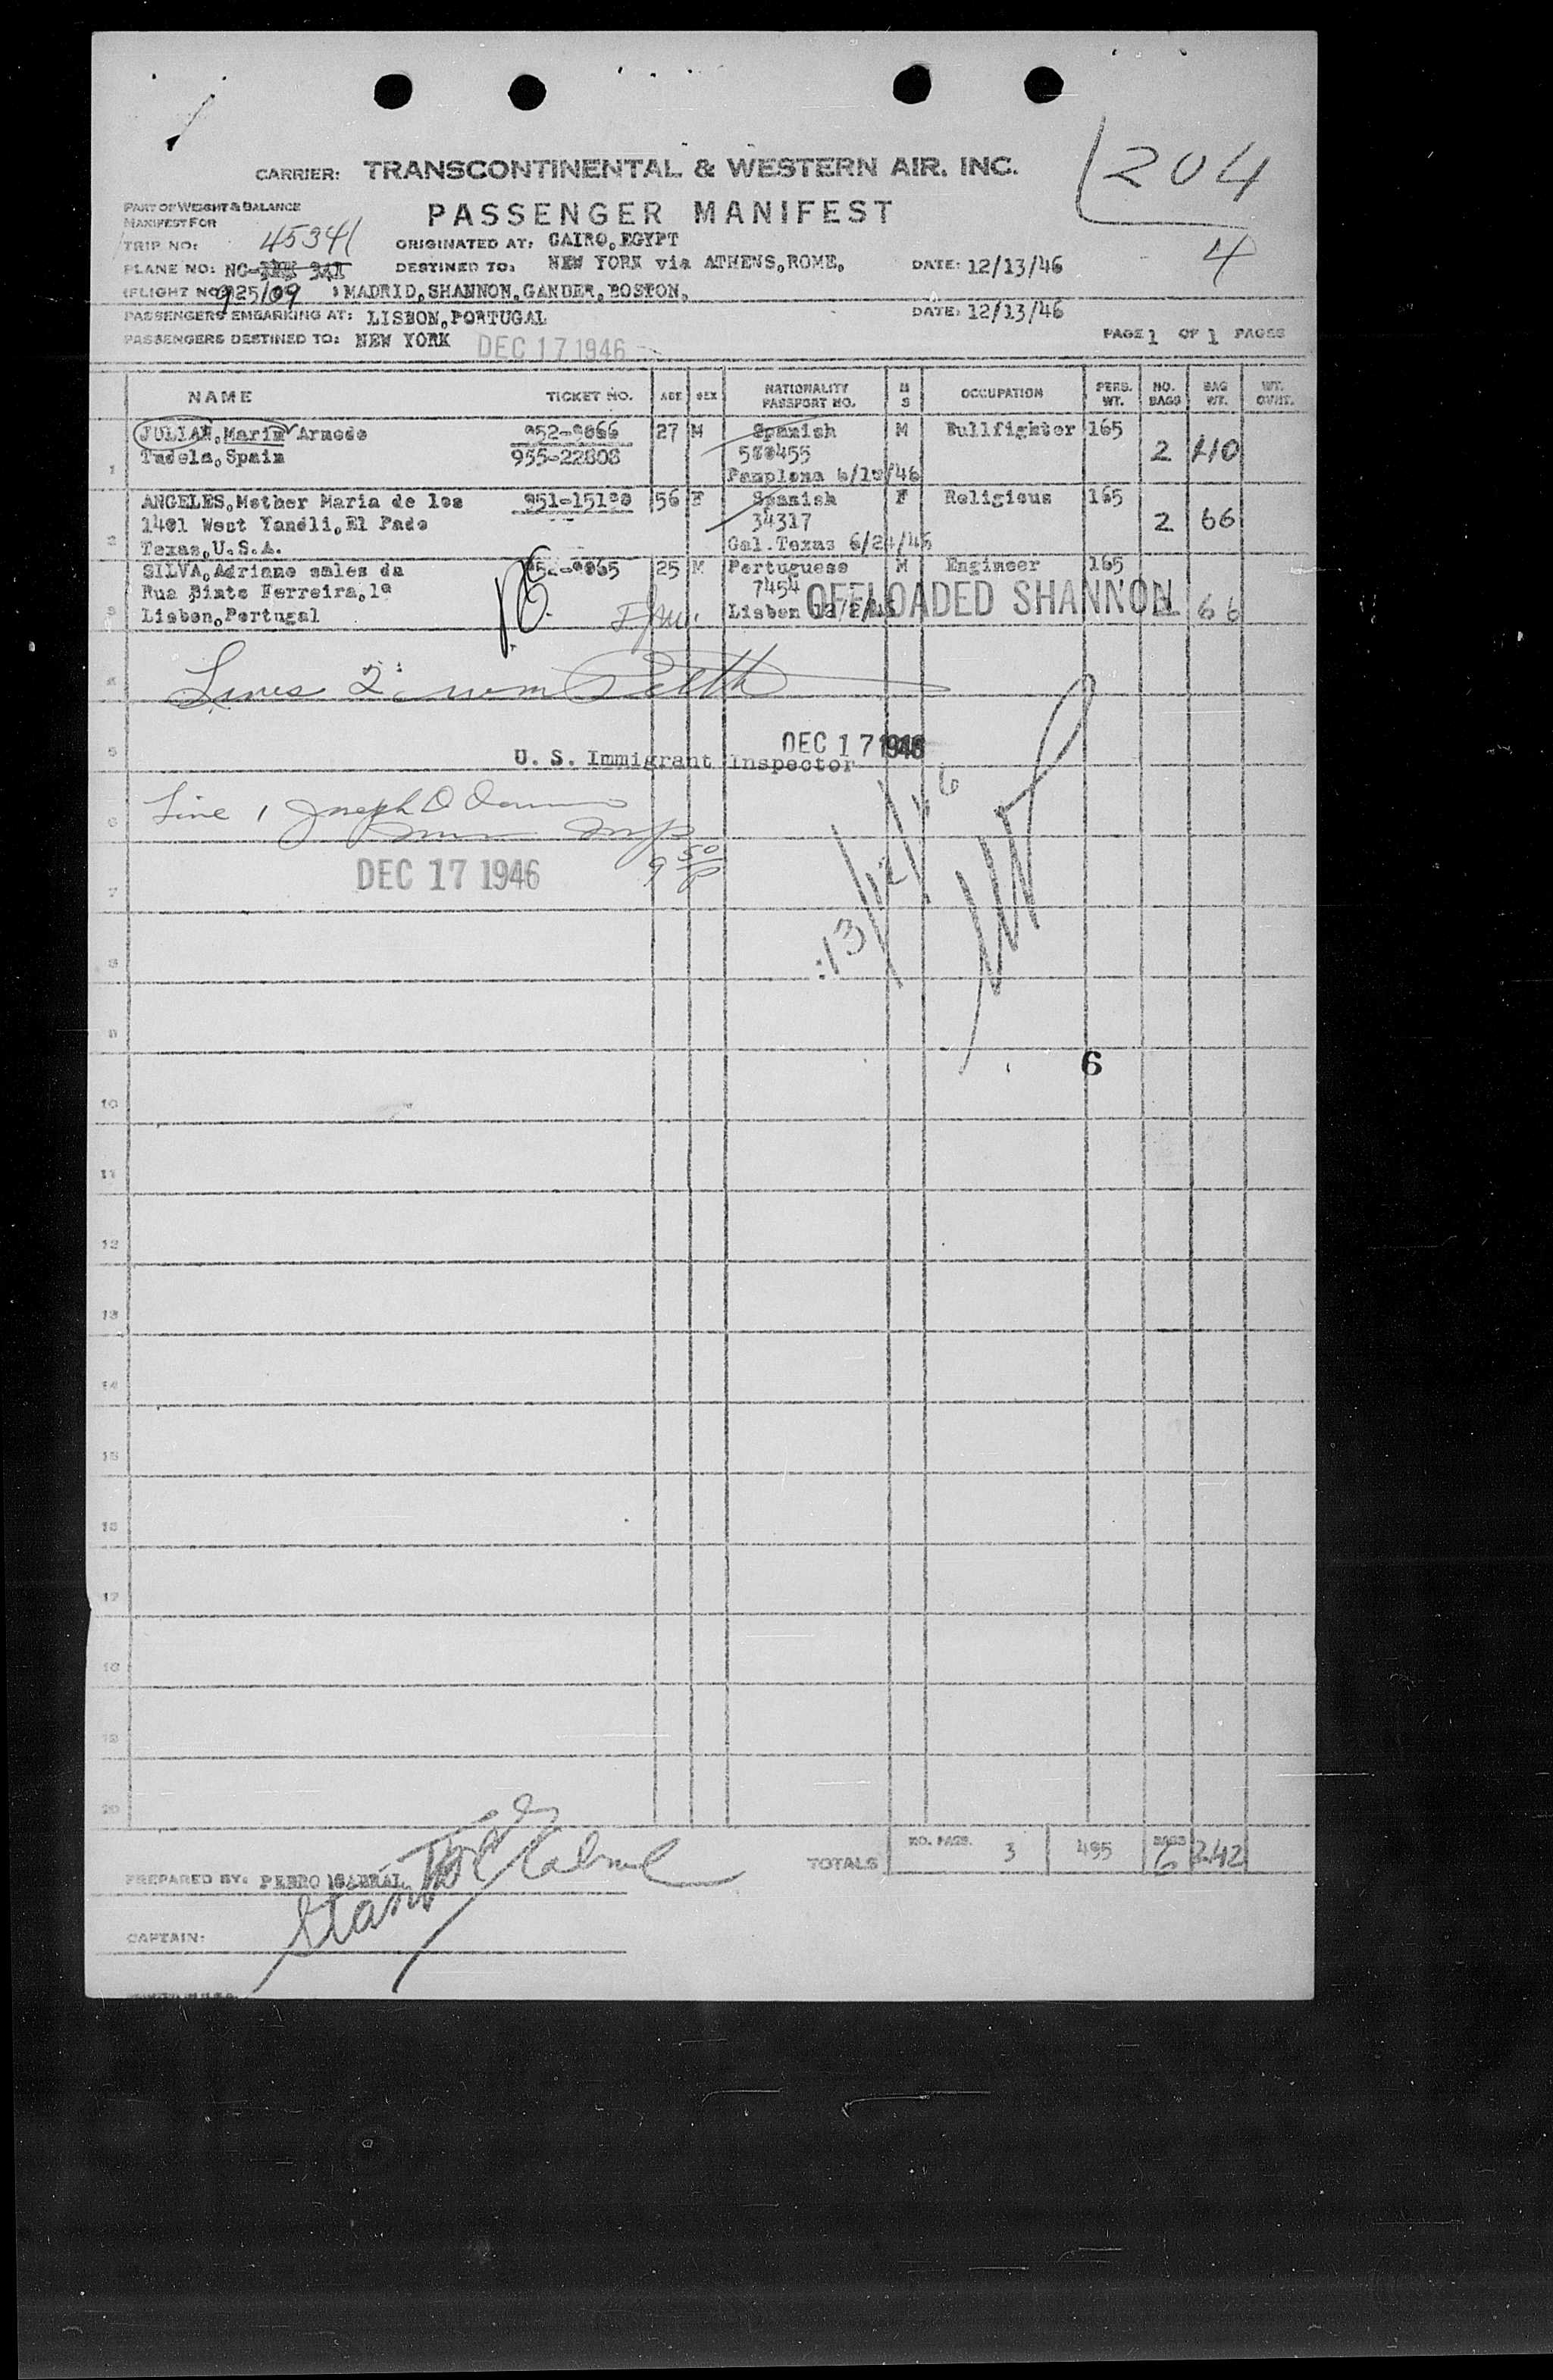 204
4
CARRIER: TRANSCONTINENTAL & WESTERN AIR. INC.
PART OF WEIGHT & BALANCE
MANIFEST FOR
PASSENGER MANIFEST
TRIP NO: 45341 ORIGINATED AT: CAIRO, EGYPT
PLANE NO: NC- 341 DESTINED TO: NEW YORK via ATHENS, ROME, DATE: 12/13/46
(FLIGHT NO. 925/09 ) MADRID, SHANNON, GANDER, BOSTON,
PASSENGERS EMBARKING AT: LISBON, PORTUGAL DATE: 12/13/46
PASSENGERS DESTINED TO: NEW YORK DEC 17 1946 PAGE 1 OF 1 PAGES
NAME TICKET NO. AGE SEX NATIONALITY PASSPORT NO. M S OCCUPATION PERS. WT. NO. BAGS BAG WT. WT. OVHT.
JULIAN, Marin Arnedo 952-9066 27 M Spanish M Bullfighter 165
Tudela, Spain 955-22808 2 110
1 Pamplona
ANGELES, Mother Maria de los 56 F Spanish F Religious 165
1401 West Yandli, El Paso 34317 2 66
2 Texas, U.S.A. Gal. Texas
SILVA, Adriano sales da 25 M Portuguese M Engineer 165
Rua Pinto Ferreira, 1ª 7454 OFFLOADED SHANNON
3 Lisbon, Portugal Lisbon 66
4 Lines 2
5 DEC 17 1946
U. S. Immigrant Inspector
6 Line 1 Joseph D
Imm Insp
7 DEC 17 1946 9 50 P
13/12/46
8
9
6
10
11
12
13
14
15
16
17
18
19
20
TOTALS NO. PASS. 3 495 BAGS 6 242
PREPARED BY: PEDRO CABRAL
CAPTAIN: